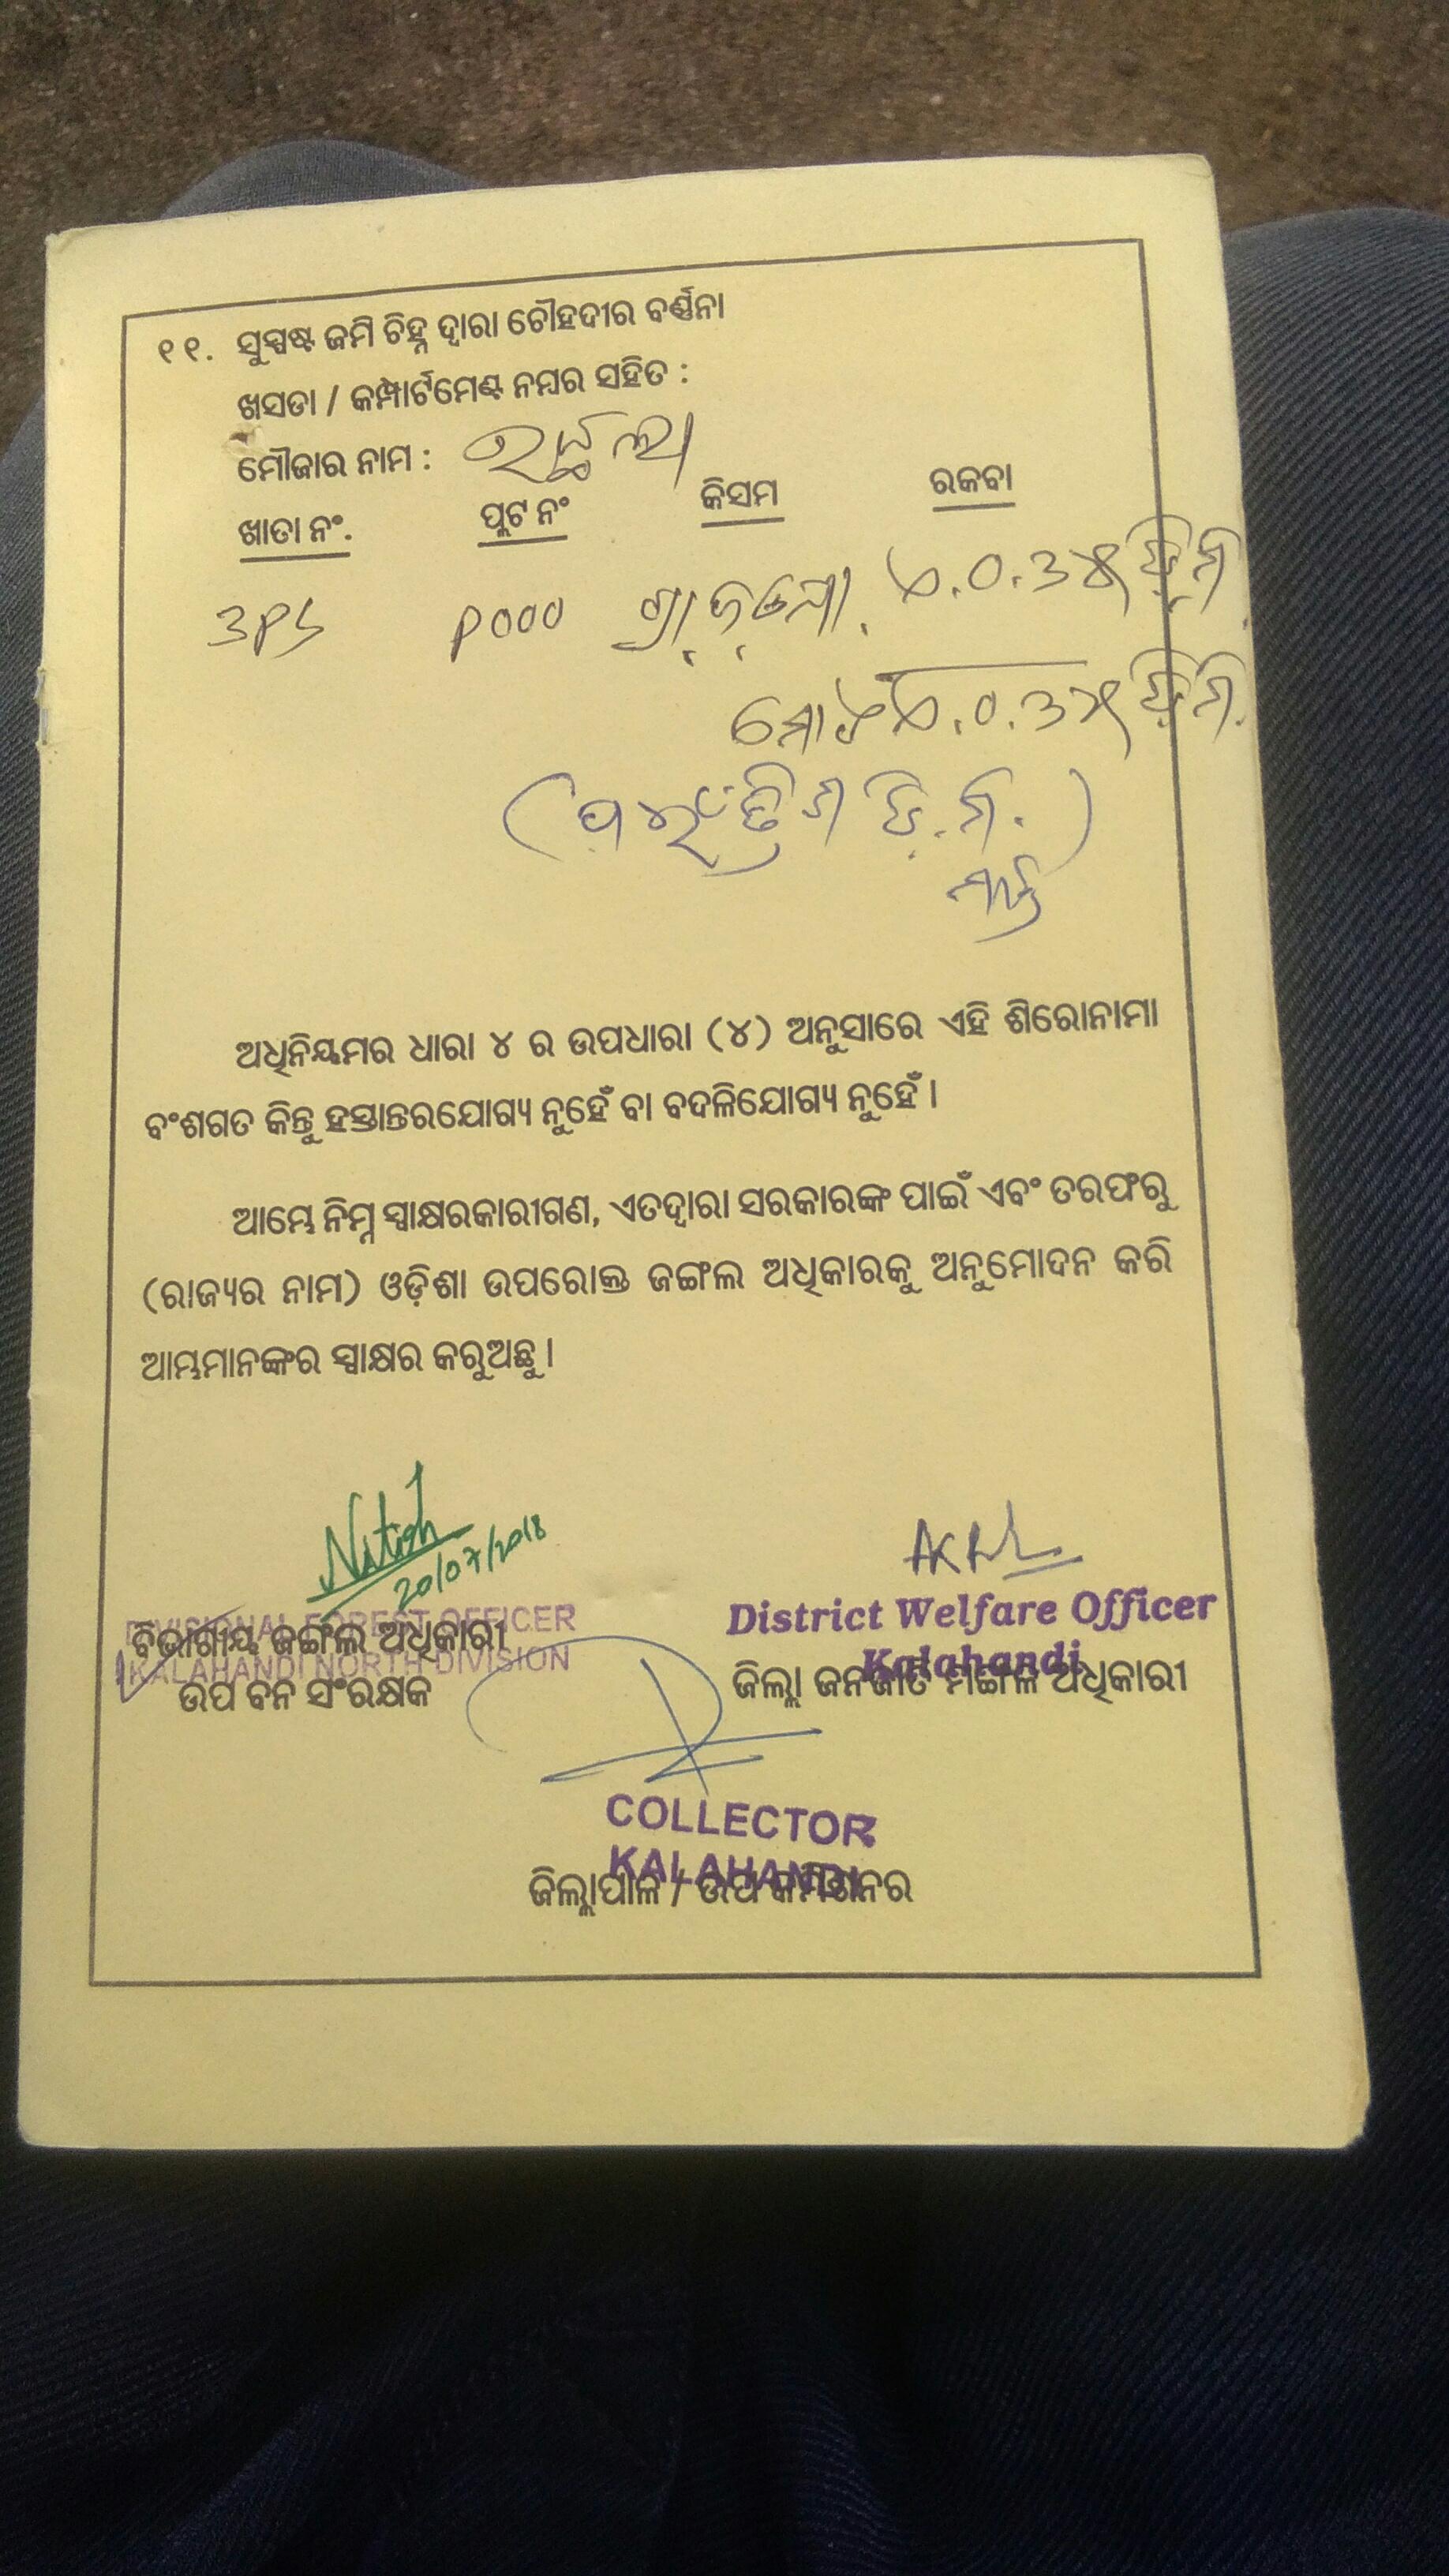 ୧୧. ସୁସ୍ପଷ୍ଟ ଜମି ଚିହ୍ନ ଦ୍ୱାରା ଚୌହଦୀର ବର୍ଣ୍ଣନା
ଖସଡା / କମ୍ପାର୍ଟମେଣ୍ଟ ନମ୍ବର ସହିତ :
ମୌଜାର ନାମ :
ଖାତା ନଂ. ପ୍ଲଟ ନଂ କିସମ ରକବା
୩୧୨ ୧୦୦୦ ଏ.୦.୩୫ ଡି.ମି.
ମୋଟ ଏ.୦.୩୫ ଡି.ମି.
(ପଇଁତ୍ରିଶ ଡି.ମି.)
ମାତ୍ର
ଅଧିନିୟମର ଧାରା ୪ ର ଉପଧାରା (୪) ଅନୁସାରେ ଏହି ଶିରୋନାମା
ବଂଶଗତ କିନ୍ତୁ ହସ୍ତାନ୍ତରଯୋଗ୍ୟ ନୁହେଁ ବା ବଦଳିଯୋଗ୍ୟ ନୁହେଁ ।
ଆମ୍ଭେ ନିମ୍ନ ସ୍ୱାକ୍ଷରକାରୀଗଣ, ଏତଦ୍ୱାରା ସରକାରଙ୍କ ପାଇଁ ଏବଂ ତରଫରୁ
(ରାଜ୍ୟର ନାମ) ଓଡ଼ିଶା ଉପରୋକ୍ତ ଜଙ୍ଗଲ ଅଧିକାରକୁ ଅନୁମୋଦନ କରି
ଆମ୍ଭମାନଙ୍କର ସ୍ୱାକ୍ଷର କରୁଅଛୁ ।
Nitish
20/07/2018
DIVISIONAL FOREST OFFICER
ବିଭାଗୀୟ ଜଙ୍ଗଲ ଅଧିକାରୀ
KALAHANDI NORTH DIVISION
ଉପ ବନ ସଂରକ୍ଷକ
District Welfare Officer
Kalahandi
ଜିଲ୍ଲା ଜନଜାତି ମଙ୍ଗଳ ଅଧିକାରୀ
COLLECTOR
KALAHANDI
ଜିଲ୍ଲାପାଳ / ଉପ କମିଶନର